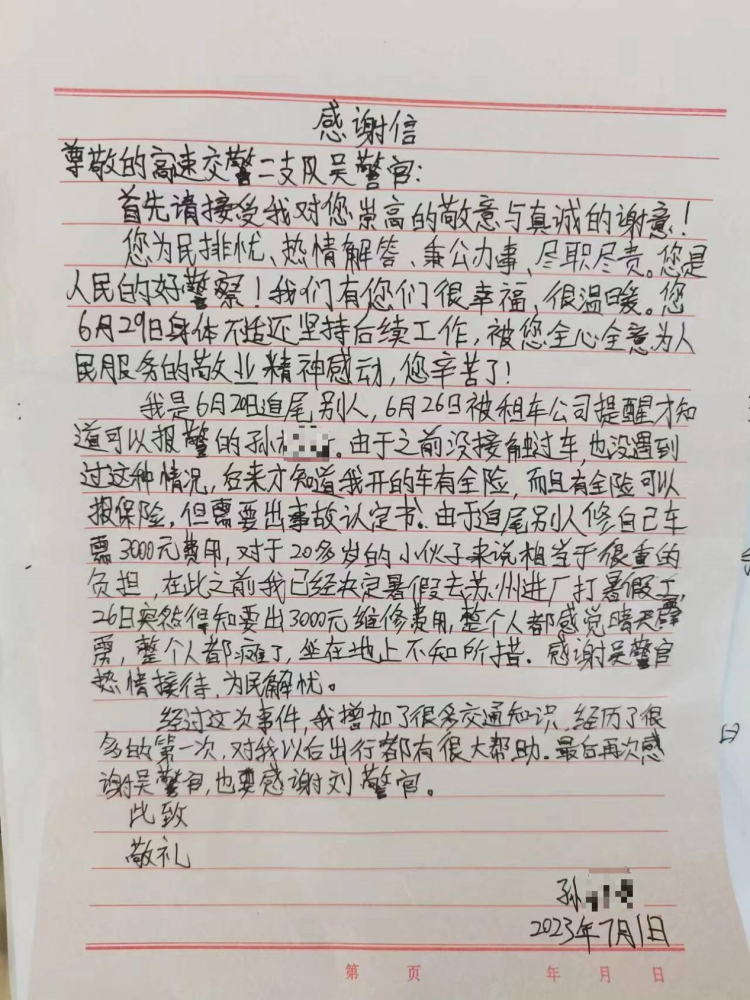 感谢信
尊敬的高速交警二支队吴警官:
首先请接受我对您崇高的敬意与真诚的谢意!
您为民排忧、热情解答、秉公办事、尽职尽责。您是
人民的好警察!我们有您们很幸福,很温暖。您
6月29日身体不适还坚持后续工作,被您全心全意为人
民服务的敬业精神感动,您辛苦了!
我是6月20日追尾别人,6月26日被租车公司提醒才知
道可以报警的孙。由于之前没接触过车,也没遇到
过这种情况,后来才知道我开的车有全险,而且有全险可以
报保险,但需要出事故认定书。由于追尾别人修自己车
需3000元费用,对于20多岁的小伙子来说相当于很重的
负担,在此之前我已经决定暑假去苏州进厂打暑假工,
26日突然得知要出3000元维修费用,整个人都感觉晴天霹
雳,整个人都瘫了,坐在地上不知所措.感谢吴警官
热情接待,为民解忧。
经过这次事件,我增加了很多交通知识,经历了很
多的第一次,对我以后出行都有很大帮助.最后再次感
谢吴警官,也要感谢刘警官。
此致
敬礼
孙
2023年7月1日
第 页 年 月 日